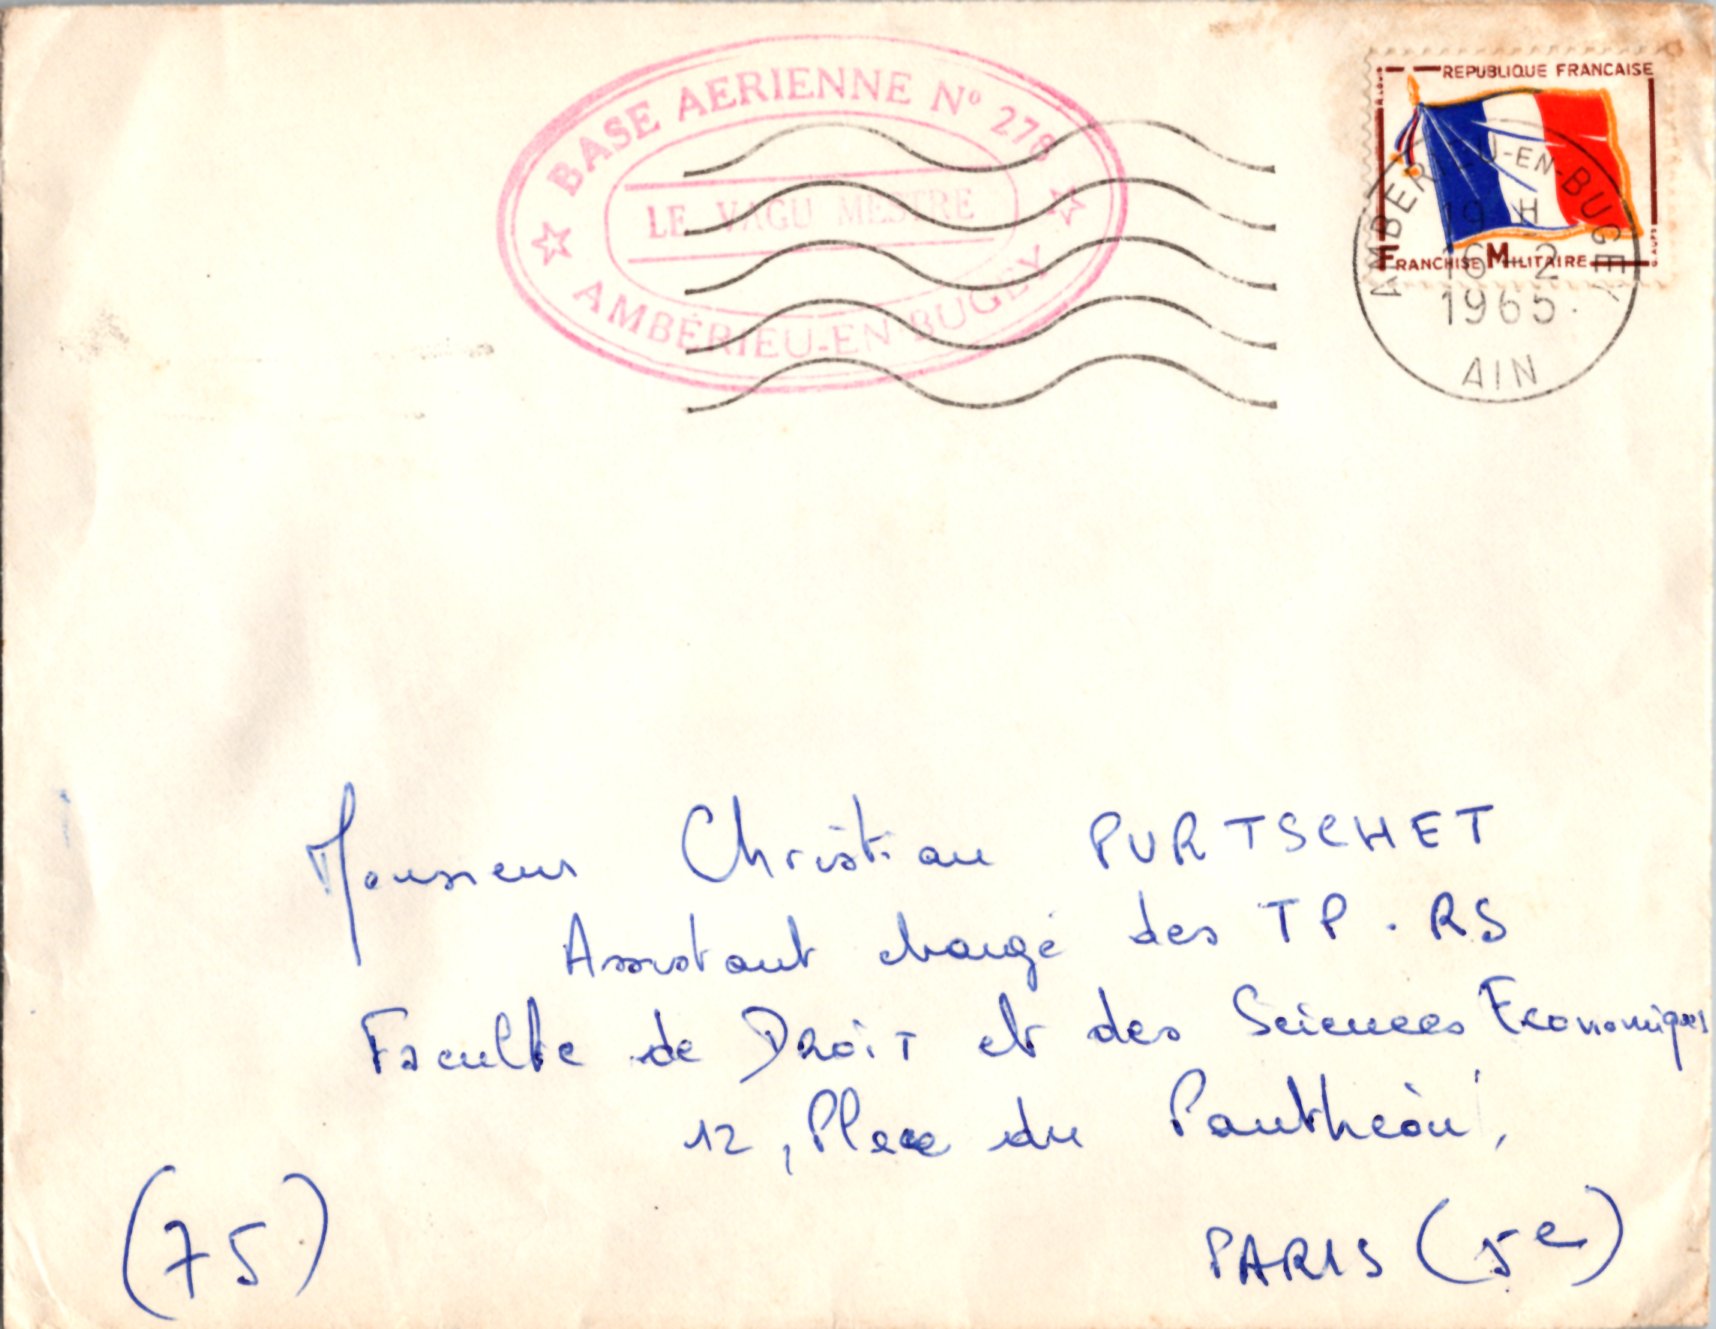 BASE AERIENNE N° 278
LE VAGUMESTRE
AMBÉRIEU-EN-BUGEY
REPUBLIQUE FRANCAISE
FRANCHISE MILITAIRE
AMBERIEU-EN-BUGEY
19 H
16 - 2
1965
AIN
Monsieur Christian PURTSCHET
Assistant chargé des TP. RS
Faculte de Droit et des Sciences Economiques
12, Place du Panthéon,
(75) PARIS (5e)